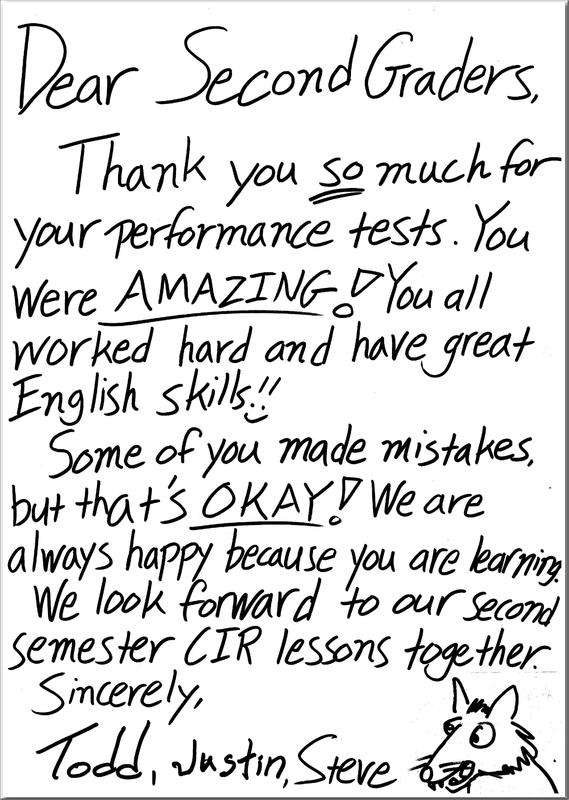 Dear Second Graders,
Thank you so much for
your performance tests. You
were AMAZING! You all
worked hard and have great
English skills!!
Some of you made mistakes,
but that's OKAY! We are
always happy because you are learning.
We look forward to our second
semester CIR lessons together.
Sincerely,
Todd, Justin, Steve